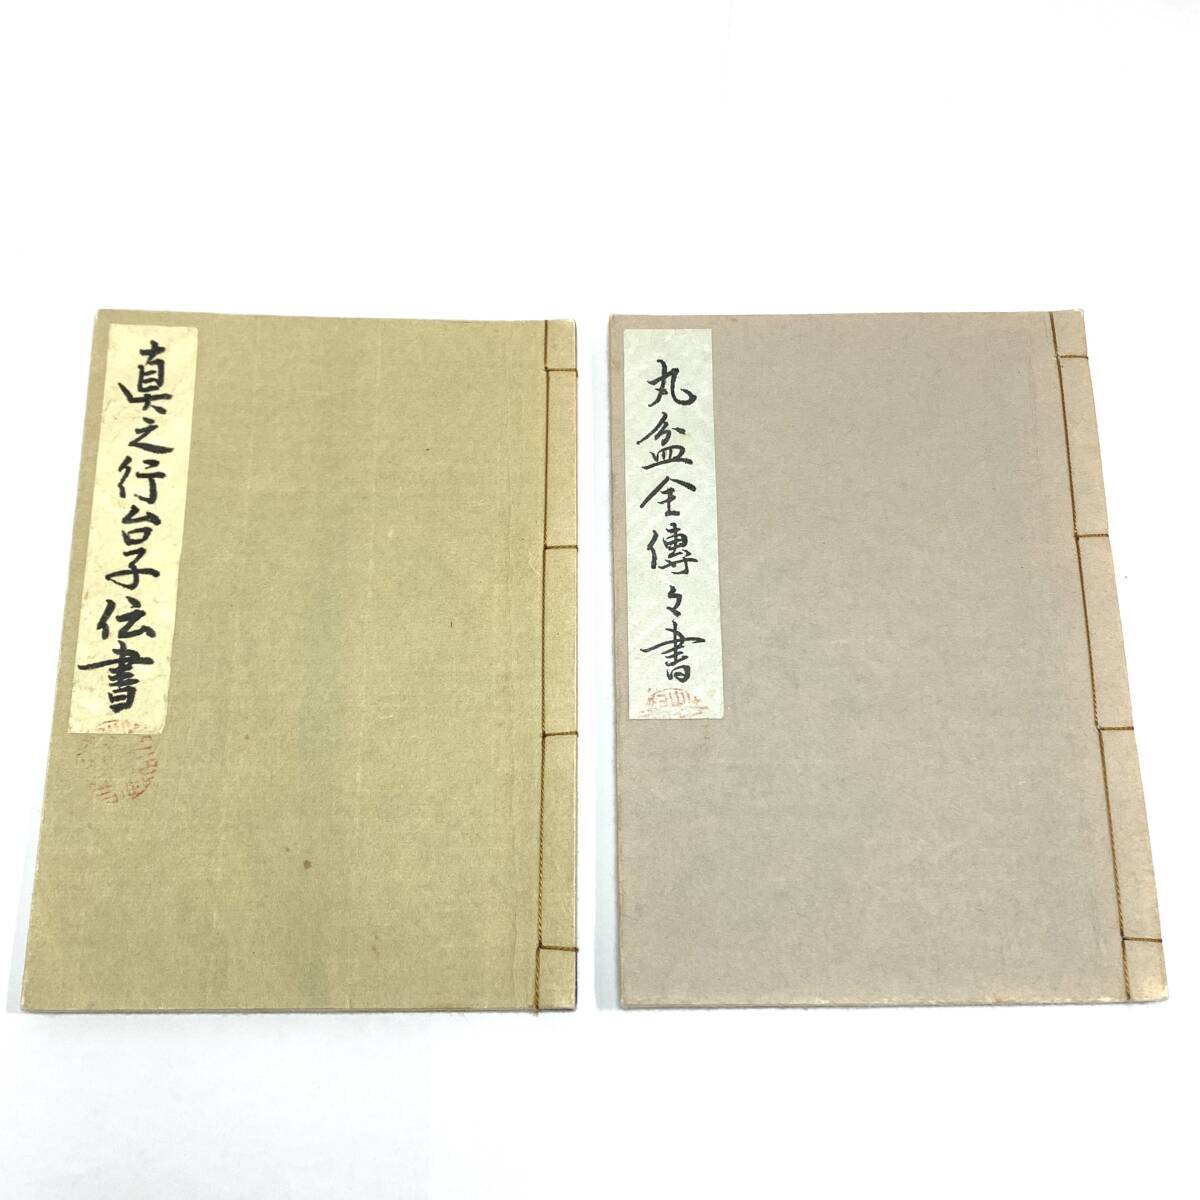 真之行台子伝書
丸盆全傳々書